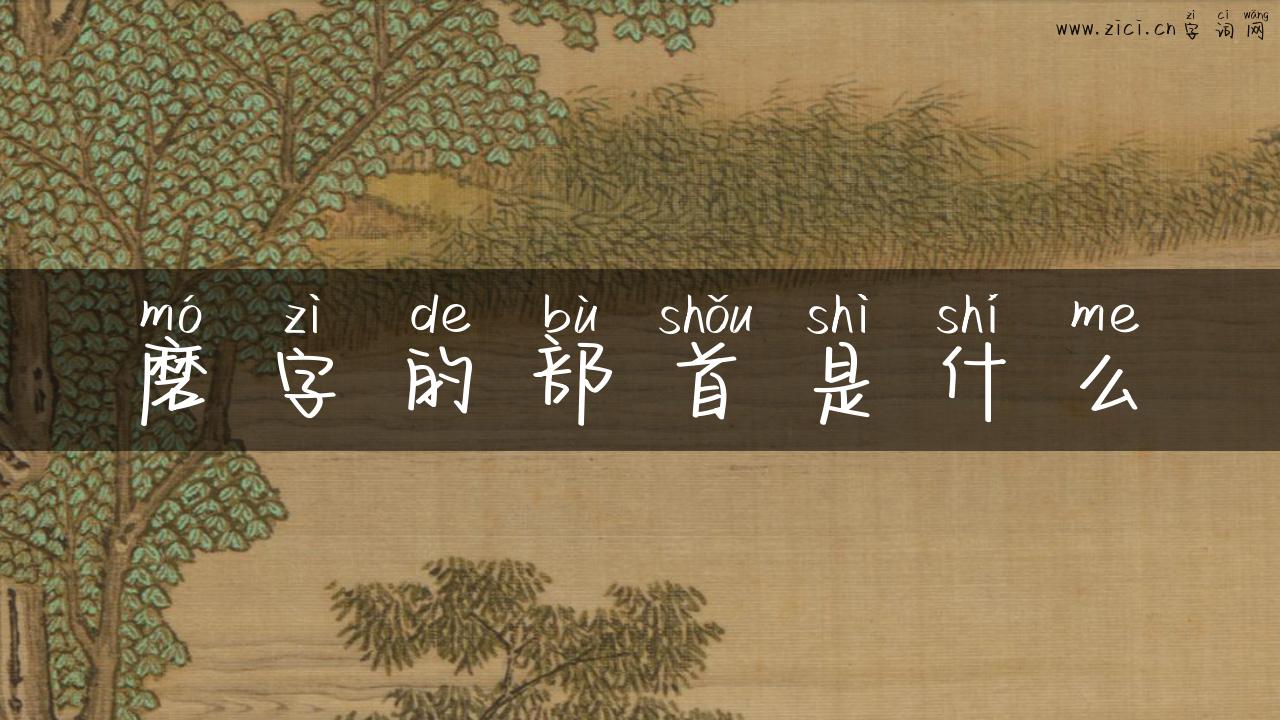 zì cí wǎng
www.zici.cn字词网
mó zì de bù shǒu shì shí me
磨字的部首是什么